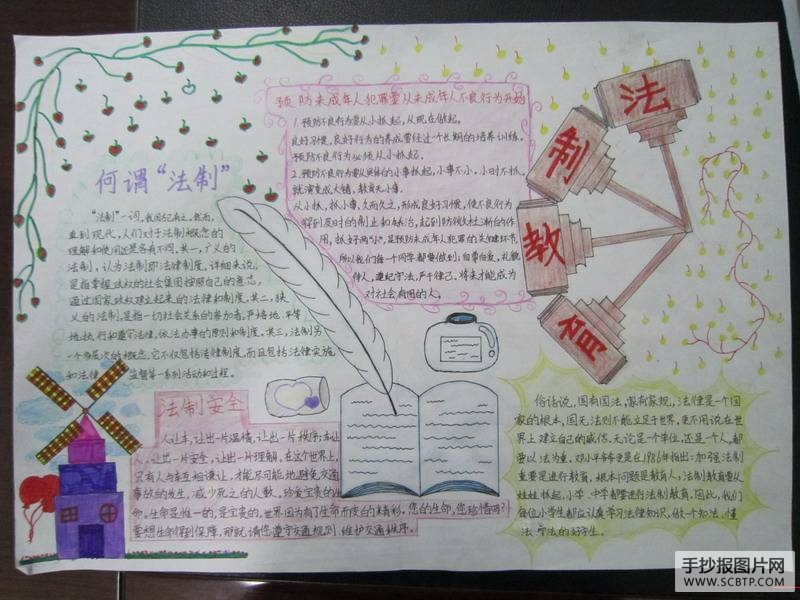 法
制
教
育
预防未成年人犯罪要从未成年人不良行为开始
1.预防不良行为要从小抓起,从现在做起。
良好习惯,良好行为的养成要经过个长期的培养训练。
预防不良行为必须从小抓起。
2.预防不良行为要从具体的小事抓起,小事不小,小时不抓,
就演变成大错,教育无小事。
从小抓,抓小事,久而久之,形成良好习惯,使不良行为
得到及时的制止和矫治,起到防微杜渐的作
用,抓好两"小",是预防未成年人犯罪的关键环节
所以我们每一个同学都要做到:自尊自爱,礼貌
待人,遵纪守法,严于律己,将来才能成为
对社会有用的人,
何谓“法制”
“法制”一词,我国古已有之。然而,
直到现代,人们对于法制概念的
理解和使用还是各有不同,其一,广义的
法制,认为法制即法律制度。详细来说,
是指掌握政权的社会集团按照自己的意志,
通过国家政权建立起来的法律和制度,其二,狭
义的法制,是指一切社会关系的参加者,严格地、平等
地执行和遵守法律,依法办事的原则和制度,其三,法制另
一个多层次的概念,它不仅包括法律制度,而且包括法律实施
和法律监督等一系列活动和过程。
法制安全
人让车,让出一片温情,让出一片秩序;车让
人,让出一片安全,让出一片理解,在这个世界上,
只有人与车互相谦让,才能尽可能地避免交通
事故的发生,减少死亡的人数,珍爱宝贵的生
命,生命是唯一的,是宝贵的,世界因为有了生命而变的精彩。您的生命,您珍惜吗?
要想生命得到保障,那就请您遵守交通规则,维护交通秩序。
俗话说,国有国法,家有家规,法律是一个国
家的根本,国无法则不能立足于世界,更不用说在世
界上建立自己的威信,无论是个单位,还是个人,都
要以法为重,邓小平爷爷更是在1986年指出:加强法制
重要是进行教育,根本问题是教育人,法制教育要从
娃娃抓起,小学、中学都要进行法制教育,因此,我们
每位小学生都应认真学习法律知识,做一个知法、懂
法、守法的好学生。
手抄报图片网
WWW.SCBTP.COM